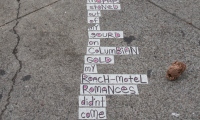 STONED
out
of
SOURD
or
COLUMBIAN
GOLD
my
ROACH-MOTEL
ROMANCES
didn't
come